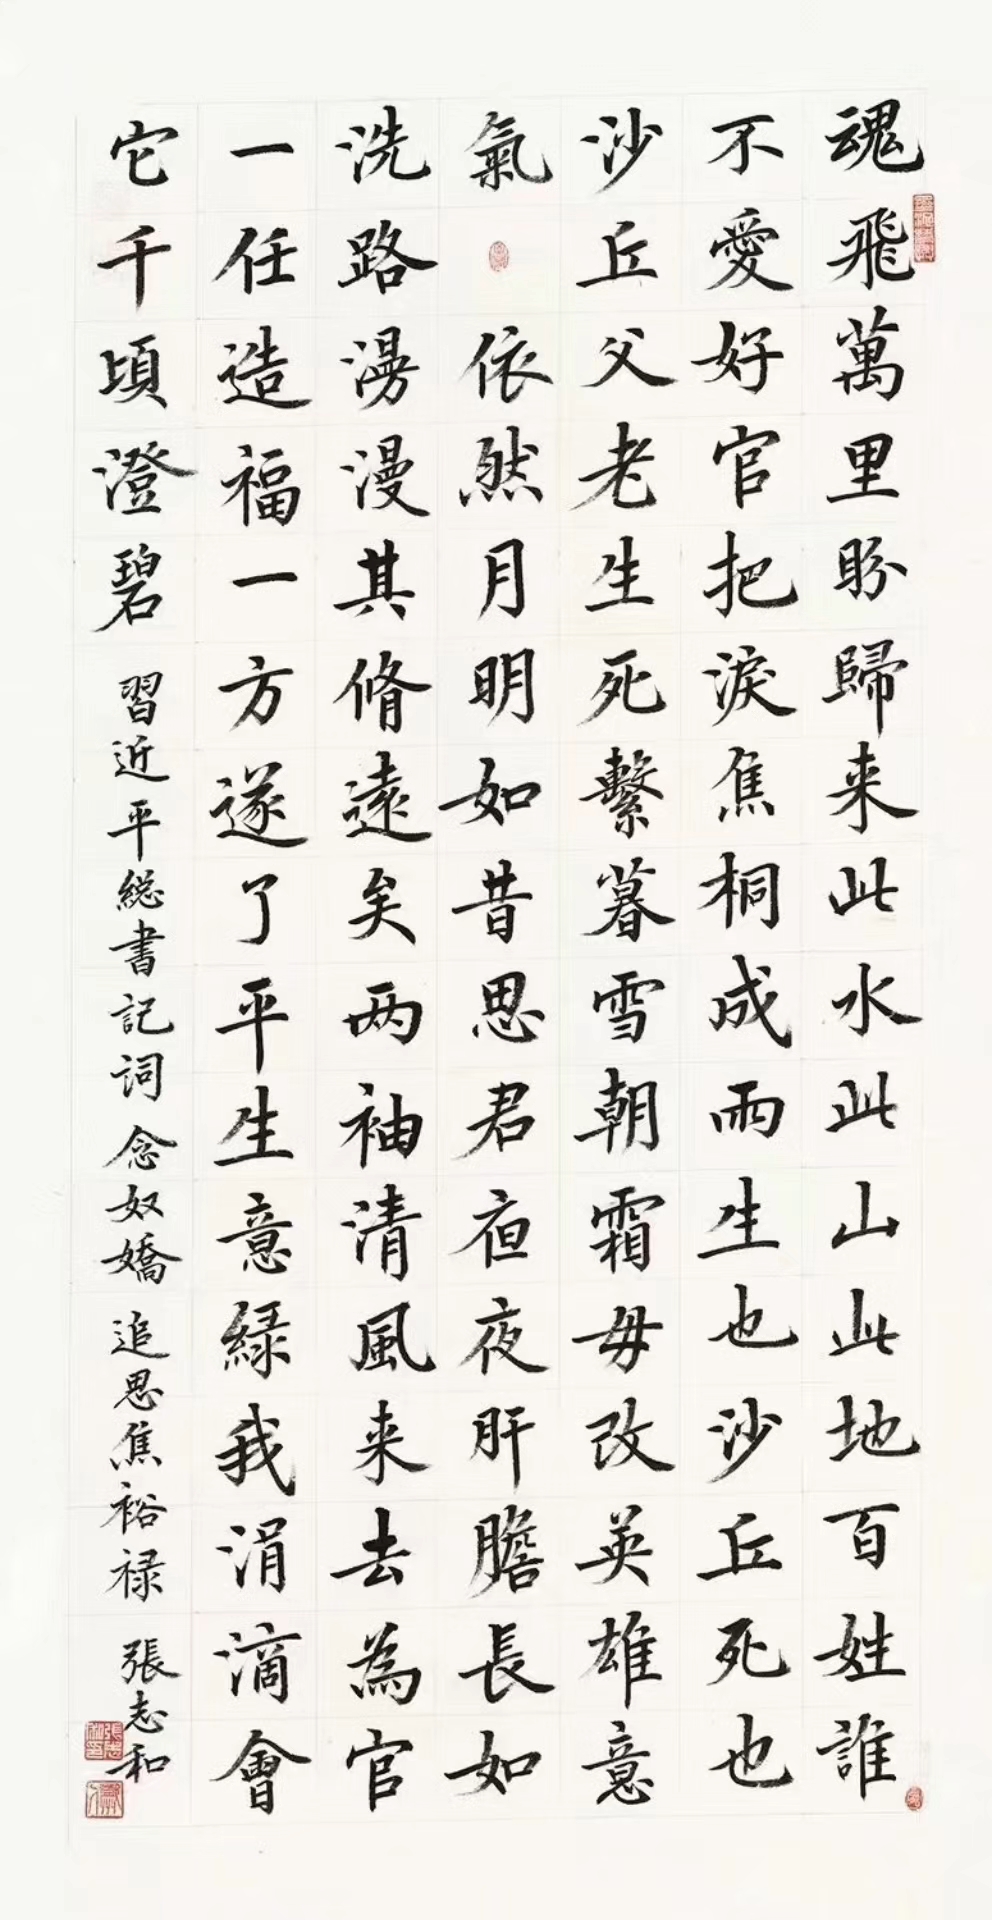 魂飛萬里盼歸来此水此山此地百姓誰
不愛好官把淚焦桐成雨生也沙丘死也
沙丘父老生死繫暮雪朝霜毋改英雄意
氣
依然月明如昔思君夜夜肝膽長如
洗路漫漫其脩遠矣两袖清風来去為官
一任造福一方遂了平生意緑我涓滴會
它千頃澄碧
習近平総書記詞念奴嬌追思焦裕禄
張志和